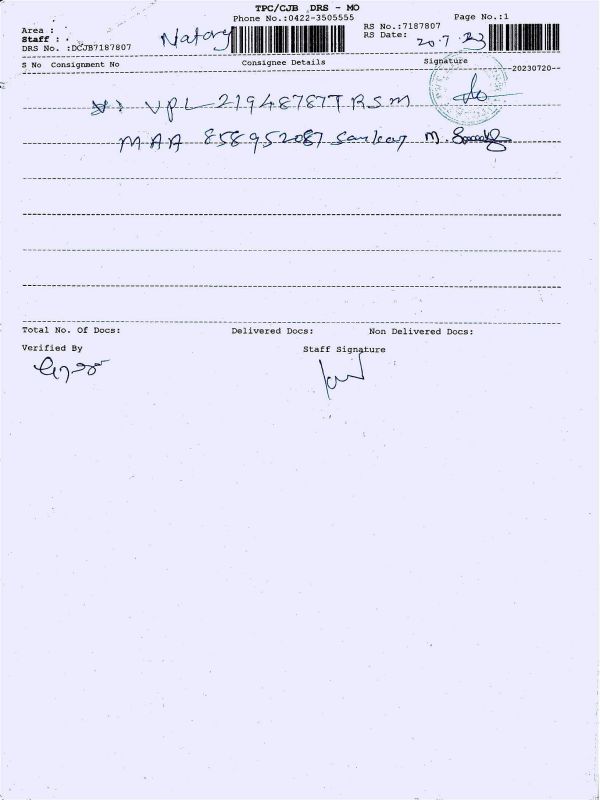 TPC/CJB DRS - MO
Phone No.:0422-3505555
Page No.:1
Area :
Staff :
DRS No. :DCJB7187807
RS No.:7187807
RS Date: 20.7.23
S No Consignment No
Consignee Details
Signature
--20230720--
VPL 219487877 RSM
MAA 858952087 Sankar M.
Total No. Of Docs:
Delivered Docs:
Non Delivered Docs:
Verified By
Staff Signature